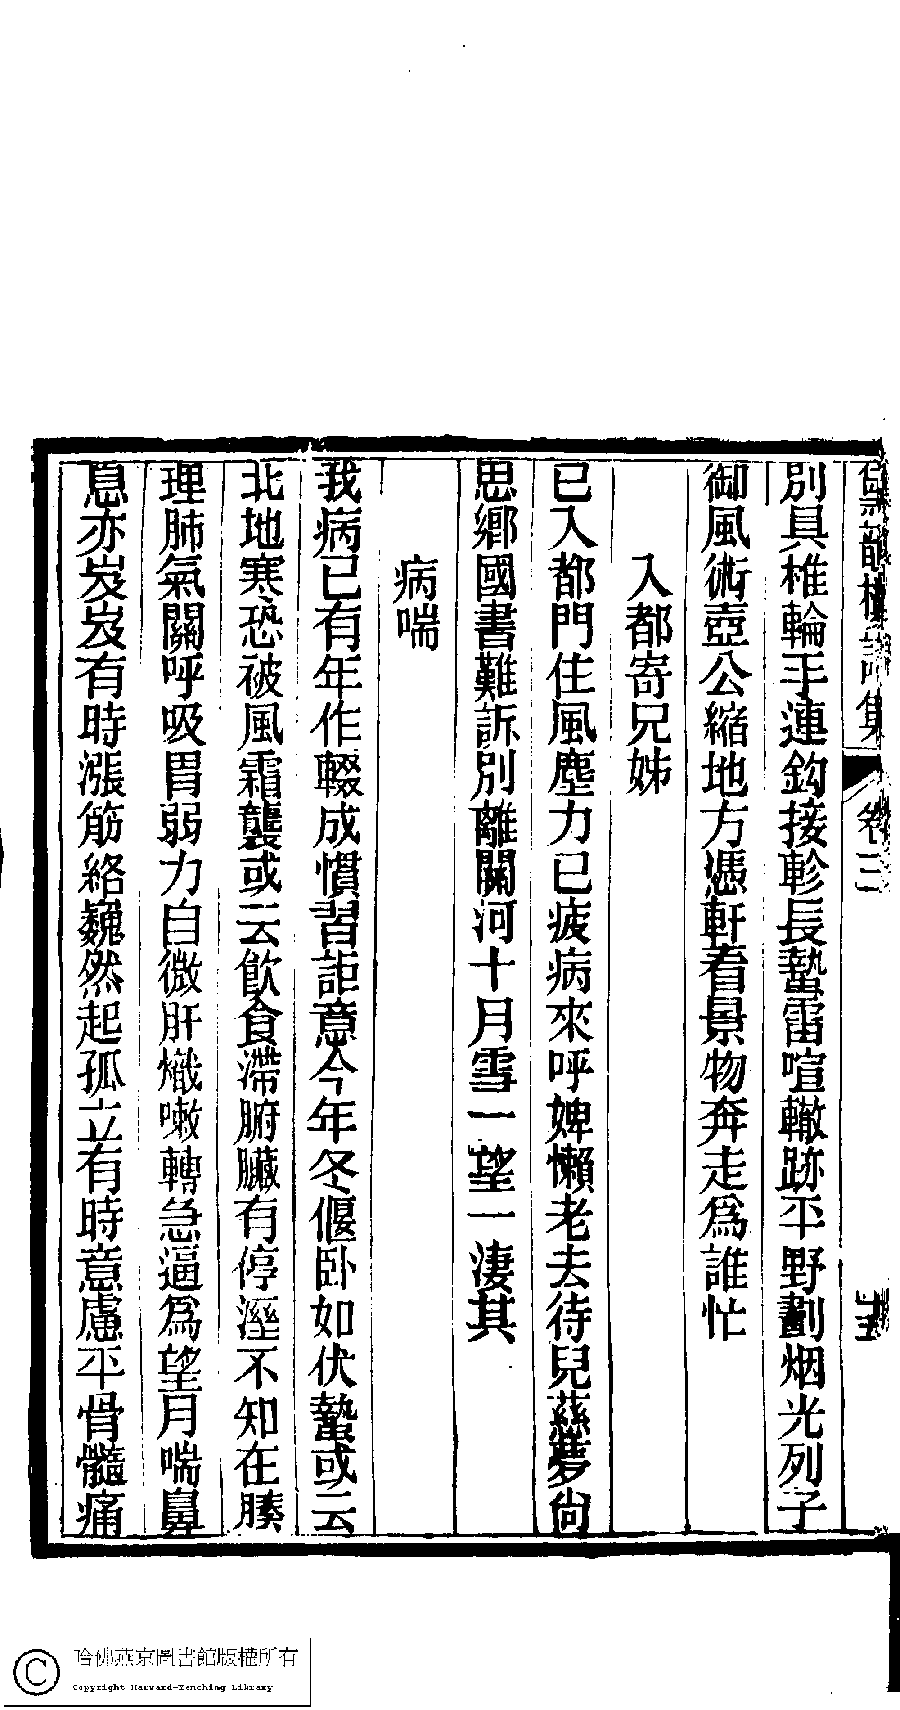 別具椎輪手連鈎接軫長蟄雷喧轍跡平野劃烟光列子
御風術壺公縮地方憑軒看景物奔走爲誰忙
入都寄兄姊
已入都門住風塵力已疲病來呼婢懶老去待兒慈夢尙
思鄉國書難訴別離關河十月雪一望一淒其
病喘
我病已有年作輟成慣習詎意今年冬偃卧如伏蟄或云
北地寒恐被風霜襲或云飮食滯腑臟有停溼不知在腠
理肺氣關呼吸胃弱力自微肝熾嗽轉急逼爲望月喘鼻
息亦岌岌有時漲筋絡巍然起孤立有時意慮平骨髓痛
詩集 卷三
哈佛燕京圖書館版權所有
Copyright Harvard-Yenching Library